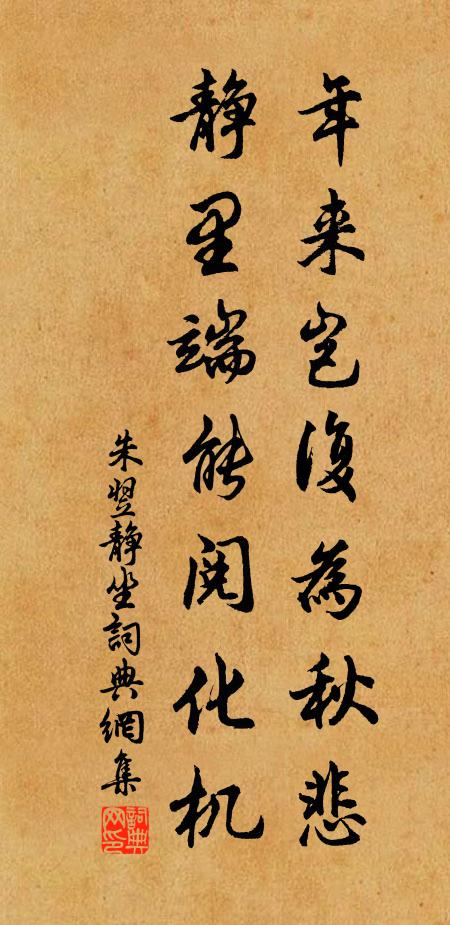 年来岂復為秋悲
静里端能阅化机
朱翌静坐詞典網集
詞典网印